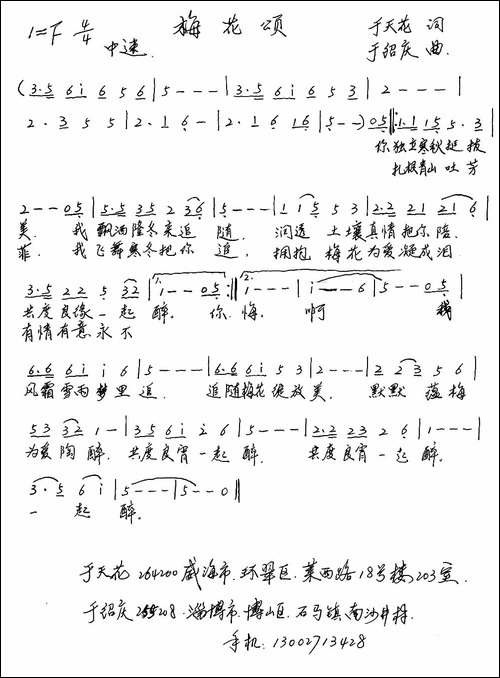 1=F 4/4 梅花颂 于天花 词
中速 于绍庆 曲
(3·5 6 i 6 5 6 | 5 - - - | 3·5 6 i 6 5 3 | 2 - - - |
2·3 5 5 | 2·1 6 - | 2·1 6 1 6 | 5 - - ) 0 5 ‖: 1·1 1 5 5·3 |
你 独立寒秋挺拔
扎根青山吐芳
2 - - 0 5 | 5·5 3 5 2 3 6 | 5 - - - | 1 1 5 5 3 | 2·2 2 1 2 1 6 |
美. 我 飘洒隆冬来追 随. 润透 土壤真情把你陪.
菲. 我 飞舞寒冬把你 追. 拥抱 梅花为爱凝成泪.
3·5 2 2 5 3 2 | 1. 1 - - 0 5 :‖ 2. 1 - - - | i - - 6 | 5 - - 0 5 |
共度良缘一起 醉. 你 悔. 啊 我
有情有意永不
6·6 6 i i 6 | 5 - - - | 6·6 6 i 5 3 | 2 - - - | 2 2 3 5 6 |
风霜雪雨梦里追. 追随梅花绽放美. 默默 蕴梅
5 3 3 2 1 - | 3 5 6 i 2 6 | 5 - - - | 2·2 2 3 2 6 | 1 - - - |
为爱陶醉. 共度良宵一起醉. 共度良宵一起醉.
3·5 6 i | 5 - - - | 5 - - 0 ‖
一 起 醉.
于天花 264200 威海市.环翠区.莱西路18号楼203室.
于绍庆 255208.淄博市.博山区.石马镇.南沙井村.
手机: 13002713428